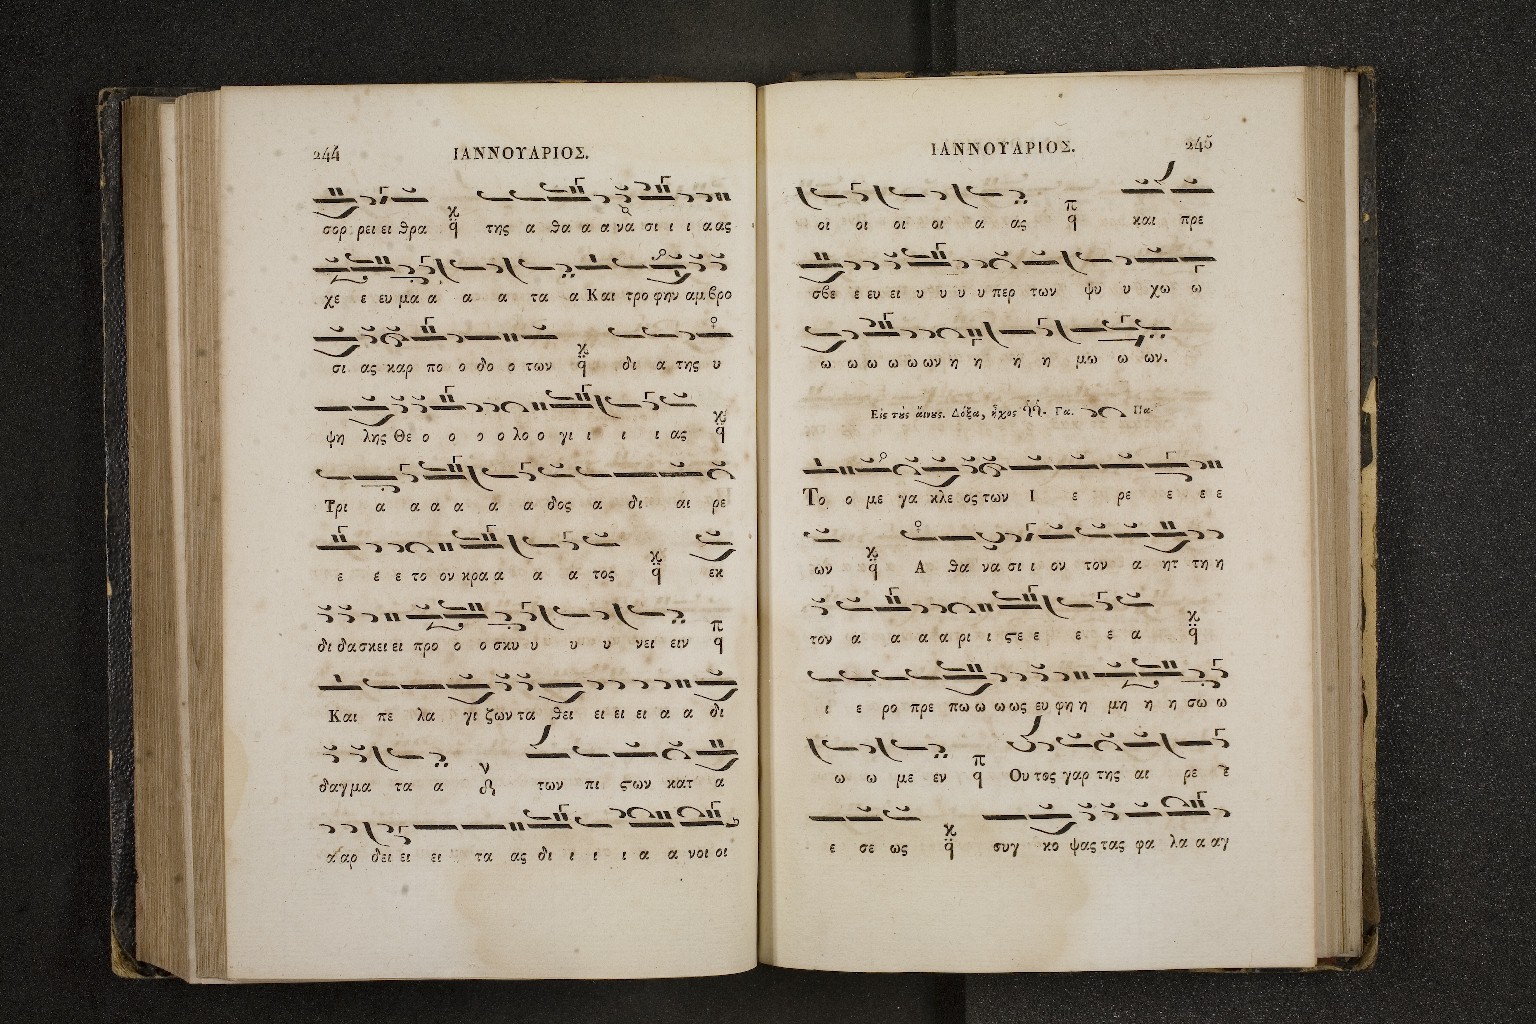 244 ΙΑΝΝΟΥΑΡΙΟΣ.
σορ ρει ει θρα της α θα α α να σι ι ι α ας
χε ε ευ μα α α α τα α Και τρο φην αμ βρο
σι ας καρ πο ο δο ο των δι α της υ
ψη λης Θε ο ο ο ο λο ο γι ι ι ι ας
Τρι α α α α α δος α δι αι ρε
ε ε ε το ον κρα α α α τος εκ
δι δα σκει ει προ ο ο σκυ υ υ υ νει ειν
Και πε λα γι ζων τα θει ει ει ει α α δι
δαγ μα τα α των πι ϛων κατ α
α αρ δει ει ει τα ας δι ι ι ι α α νοι οι
ΙΑΝΝΟΥΑΡΙΟΣ. 245
οι οι οι οι α ας και πρε
σβε ε ευ ει υ υ υ υ περ των ψυ υ χω ω
ω ω ω ω ω ων η η η η μω ω ων.
Εἰς τὺς αἴνυς. Δόξα, ἦχος Γα. Πα
Το ο με γα κλε ος των Ι ε ρε ε ε ε
ων Α θα να σι ι ον τον α ητ τη η
τον α α α α ρι ι ϛε ε ε ε α
ι ε ρο πρε πω ω ω ως ευ φη η μη η η σω ω
ω ω με εν Ου τος γαρ της αι ρε ε
ε σε ως συγ κο ψας τας φα λα α αγ